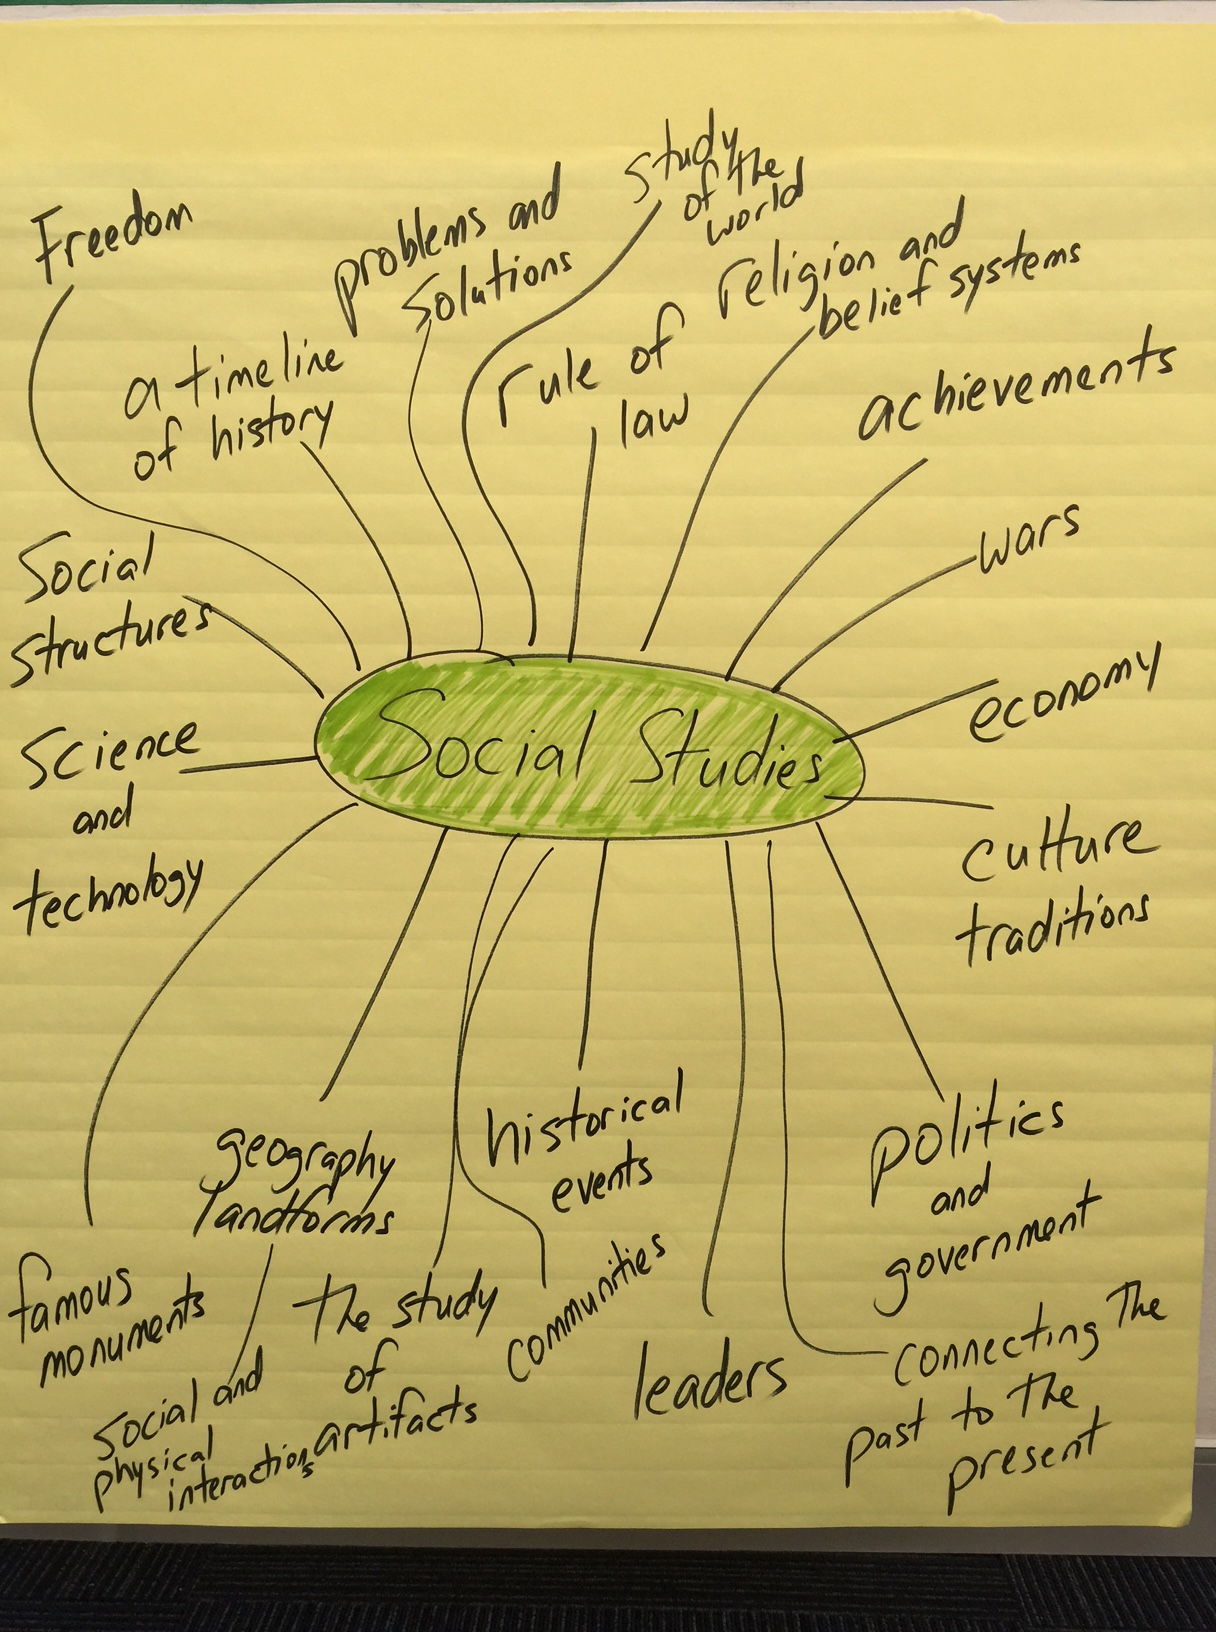 Freedom
a timeline
of history
problems and
solutions
study
of the
world
rule of
law
religion and
belief systems
achievements
wars
economy
culture
traditions
Social
structures
Science
and
technology
Social Studies
famous
monuments
geography
landforms
social and
physical
interactions
the study
of
artifacts
communities
historical
events
leaders
politics
and
government
connecting the
past to the
present